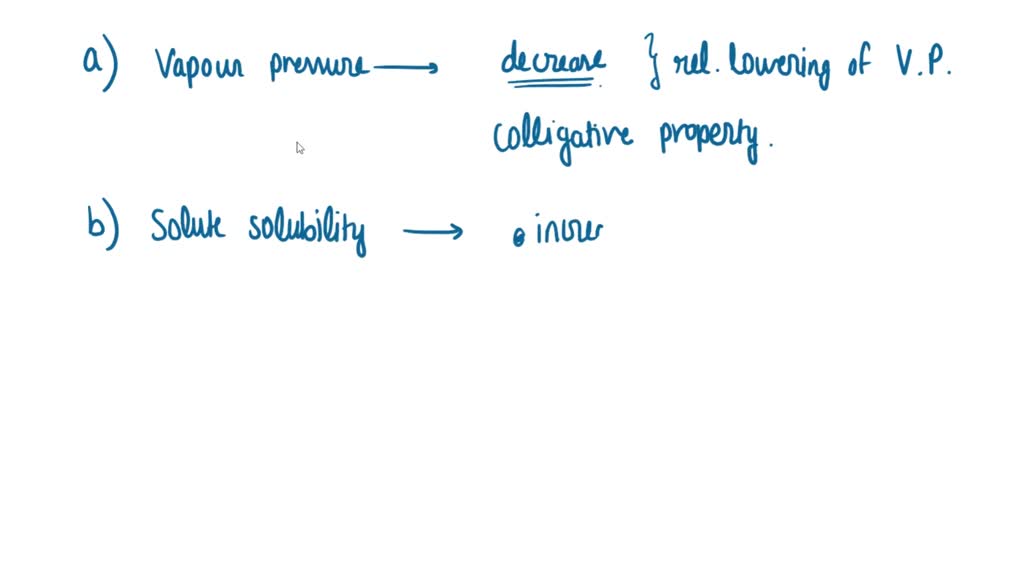 a) Vapour pressure → decrease } rel. lowering of V.P.
colligative property.
b) Solute solubility →